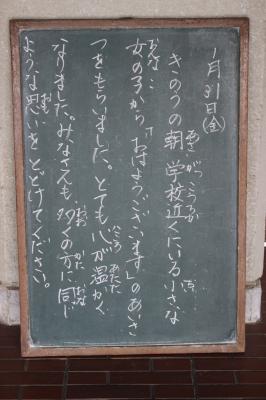 1月31日(金)
きのうの朝、学校近くにいる小さな
女の子から、「おはようございます」のあいさ
つをもらいました。とても心が温かく
なりました。みなさんも、多くの方に同じ
ような思いをとどけてください。